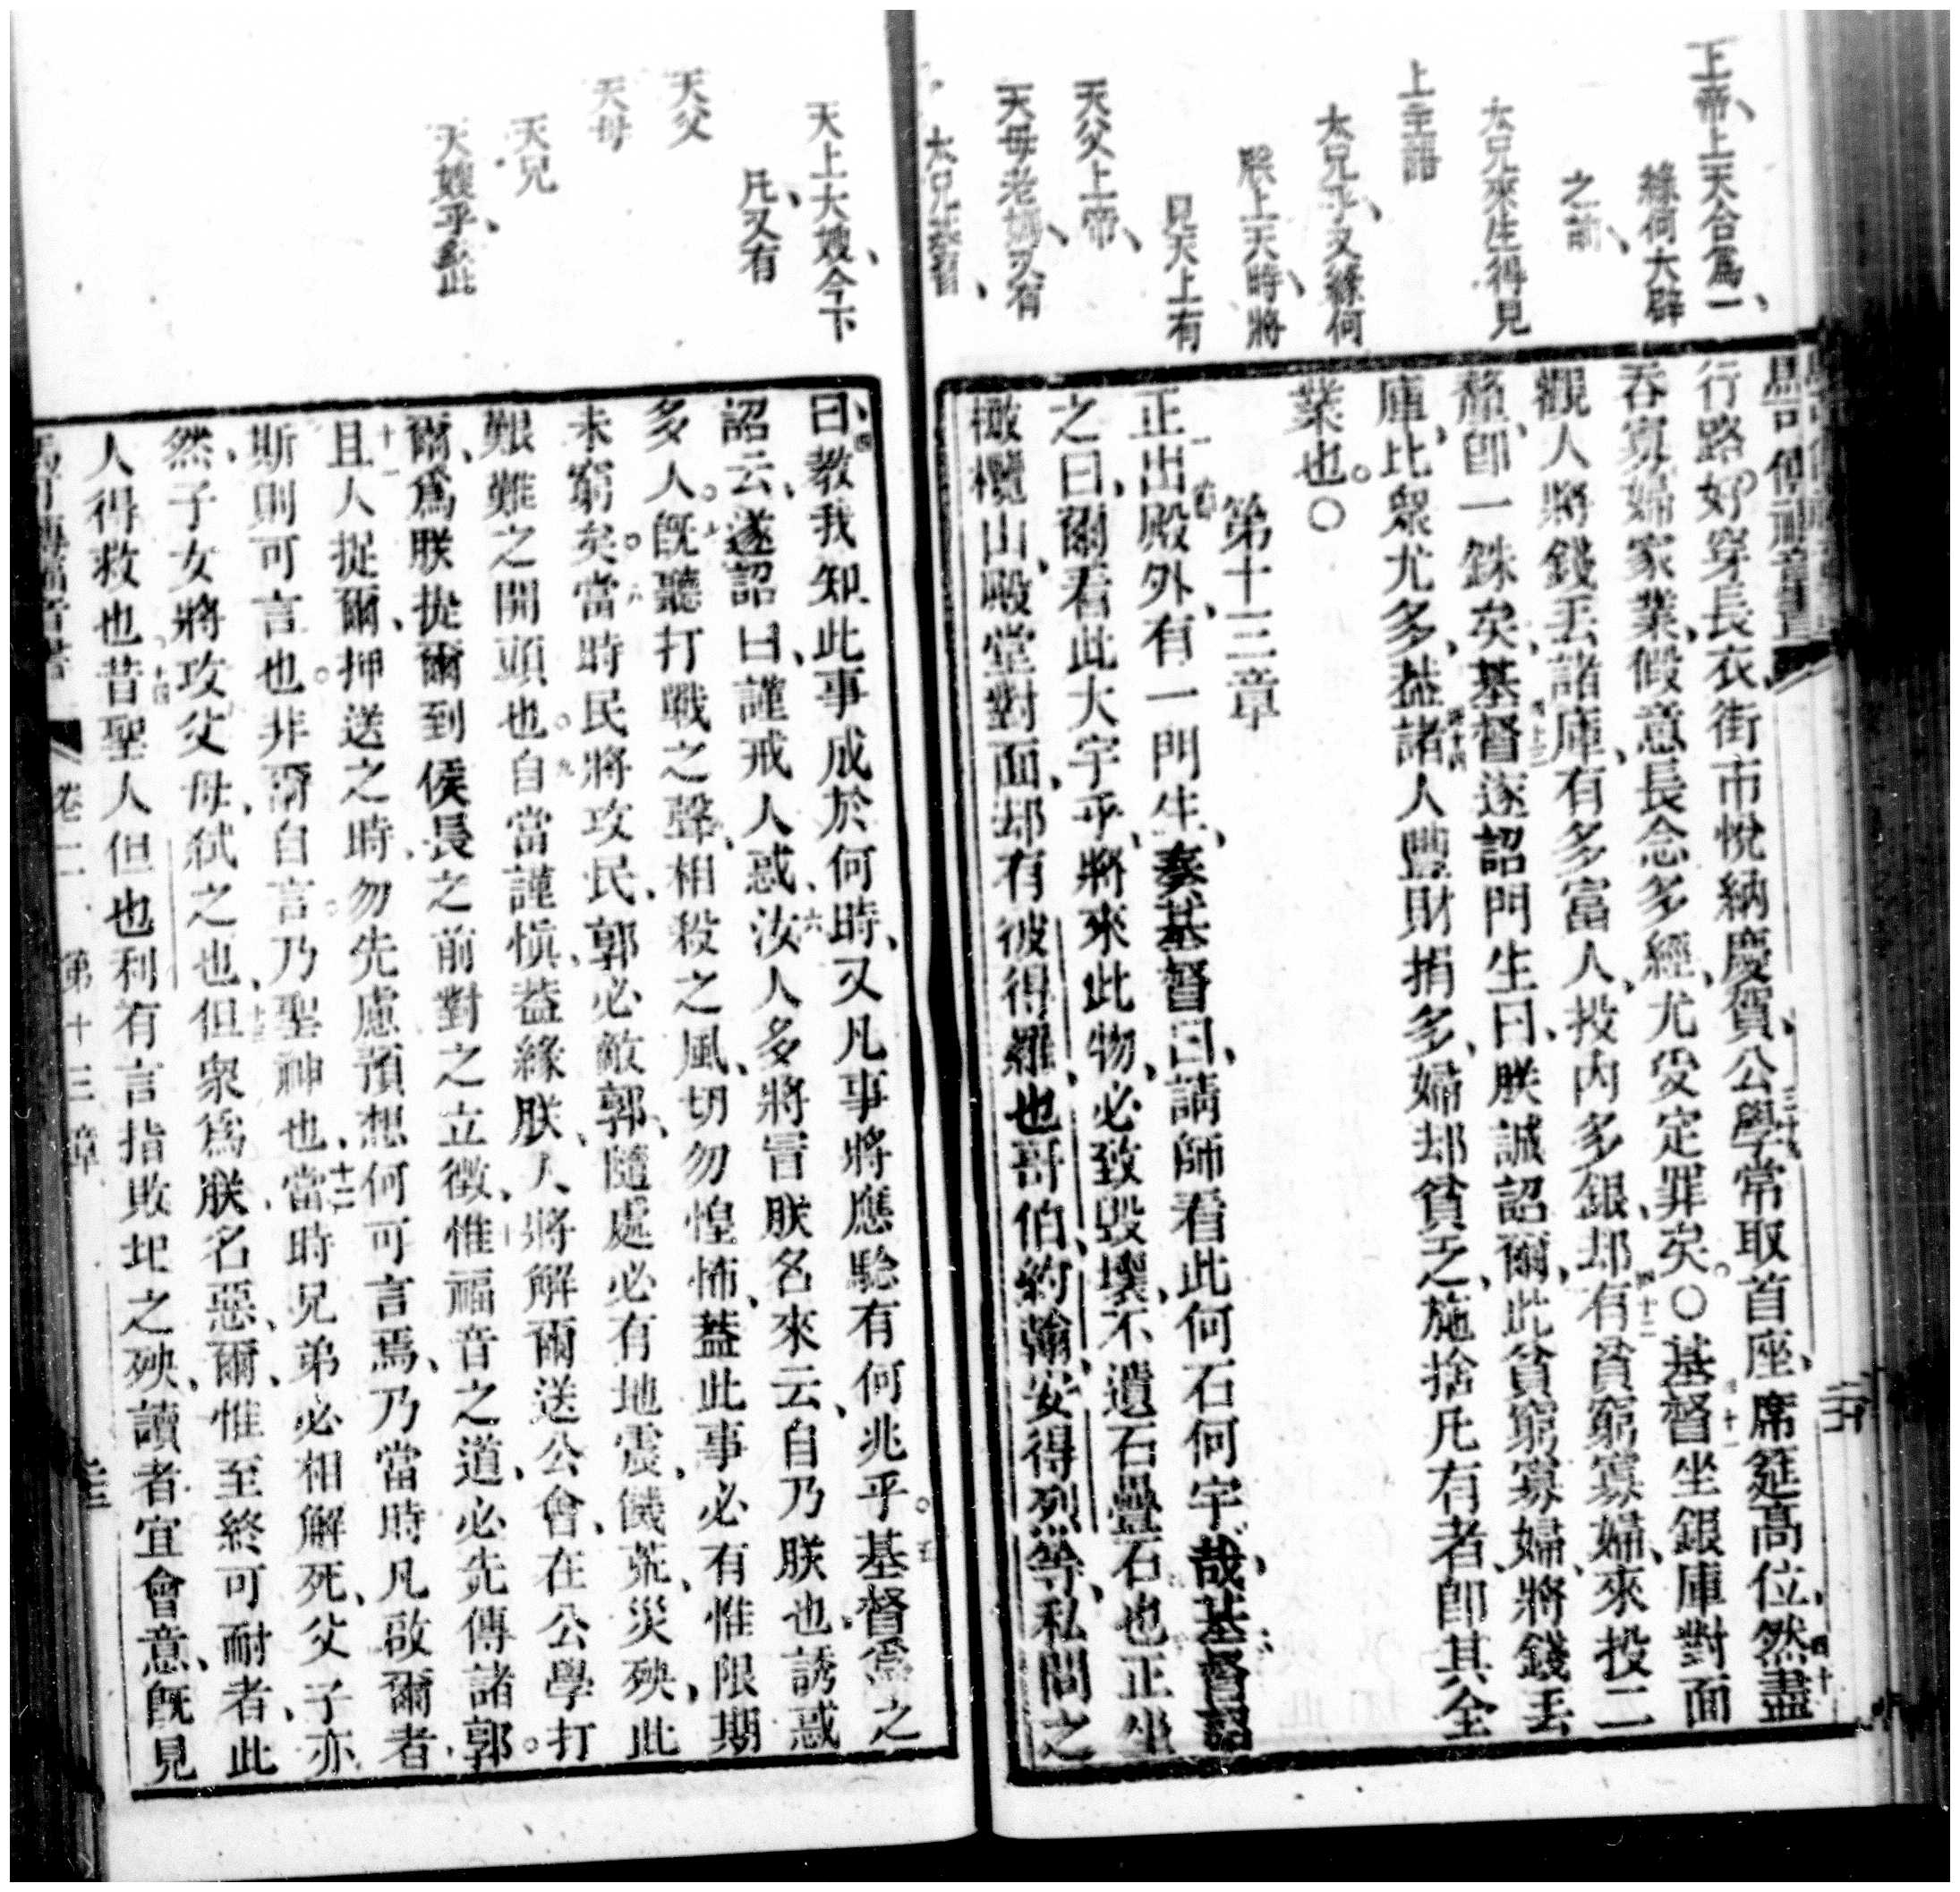 上帝、上天合爲一、
緣何大辟
之前、
太兄來生得見
上主語
太兄乎、又緣何
朕上天時、將
見天上有
天父上帝、
天母老媽、又有
太兄基督、
天上大嫂、今下
凡、又有
天父
天母
天兄
天嫂乎、欽此
馬可傳福音書
行路、好穿長衣、街市悅納慶賀、三十九公學常取首座、席筵高位、四十然盡
吞寡婦家業、假意長念多經、尤受定罪矣。〇四十一基督坐銀庫對面
觀人將錢丟諸庫、有多富人、投內多銀、四十二却有貧窮寡婦、來投二
釐、卽一銖矣、四十三基督遂詔門生曰、朕誠詔爾、此貧窮寡婦、將錢丟
庫、比衆尤多、四十四葢諸人豐財捐多、婦却貧乏、施捨凡有者、卽其全
業也。〇
第十三章
一正出殿外、有一門生、奏基督曰、請師看此何石何宇哉、二基督詔
之曰、爾看此大宇乎、將來此物、必致毀壞、不遺石疊石也、三正坐
橄欖山、殿堂對面、却有彼得羅、也哥伯、約翰、安得烈等、私問之
曰、四教我知此事成於何時、又凡事將應驗有何兆乎。五基督爲之
詔云、遂詔曰、謹戒人惑、六汝人多將冒朕名來云、自乃朕也、誘惑
多人。七旣聽打戰之聲、相殺之風、切勿惶怖、葢此事必有、惟限期
未窮矣。八當時民將攻民、郭必敵郭、隨處必有地震、饑荒、災殃、此
艱難之開頭也。九自當謹愼、葢緣朕、人將解爾送公會、在公學打
爾、爲朕捉爾到侯長之前、對之立徵、十惟福音之道、必先傳諸郭。
十一且人捉爾、押送之時、勿先慮預想何可言焉、乃當時凡啟爾者
斯則可言也。非爾自言、乃聖神也、十二當時兄弟必相解死、父子亦
然、子女將攻父母、弒之也、十三但衆爲朕名惡爾、惟至終可耐者、此
人得救也。十四昔聖人但也利有言、指敗圯之殃、讀者宜會意、旣見
卷二
第十三章